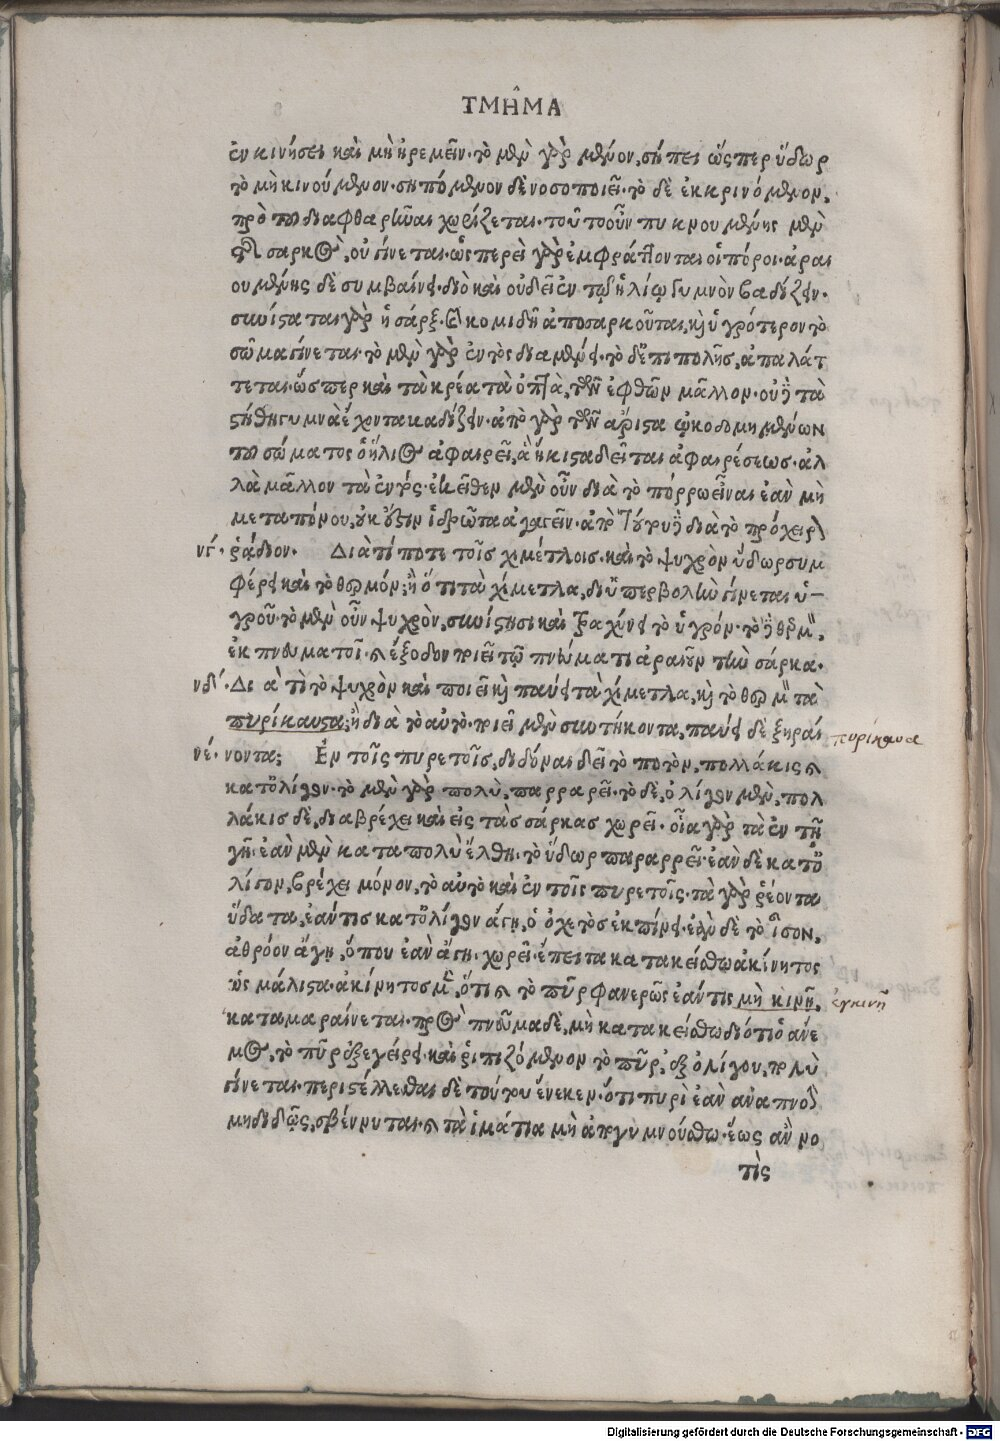 ΤΜΗ͂ΜΑ
ἐν κινήσει καὶ μὴ ἠρεμεῖν· τὸ μὲν γὰρ μένον, σήπει ὥσπερ ὕδωρ
τὸ μὴ κινούμενον· σηπόμενον δὲ νοσοποιεῖ· τὸ δὲ ἐκκρινόμενον,
πρὸ τοῦ διαφθαρῆναι χωρίζεται· τοῦτο οὖν πυκνουμένης μὲν
τῆς σαρκὸς, οὐ γίνεται· ὡσπερεὶ γὰρ ἐμφράττονται οἱ πόροι· ἀραι
ουμένης δὲ συμβαίνει· διὸ καὶ οὐ δεῖ ἐν τῷ ἡλίῳ γυμνὸν βαδίζειν·
συνίσταται γὰρ ἡ σάρξ· καὶ κομιδῇ ἀποσαρκοῦται, καὶ ὑγρότερον τὸ
σῶμα γίνεται· τὸ μὲν γὰρ ἐντὸς διαμένει· τὸ δ' ἐπιπολῆς, ἀπαλάτ
τεται· ὥσπερ καὶ τὰ κρέα τὰ ὀπτὰ, τῶν ἑφθῶν μᾶλλον· οὐδὲ τὰ
στήθη γυμνὰ ἔχοντα βαδίζειν· ἀπὸ γὰρ τῶν ἄριστα ᾠκοδομημένων
τοῦ σώματος ὁ ἥλιος ἀφαιρεῖ, ἃ ἥκιστα δεῖται ἀφαιρέσεως· ἀλ
λὰ μᾶλλον τὰ ἐντός· ἐκεῖθεν μὲν οὖν διὰ τὸ πόρρω εἶναι ἐὰν μὴ
μετὰ πόνου, οὐκ ἔστιν ἱδρῶτα ἀγαγεῖν· ἀπὸ τούτου δὲ διὰ τὸ πρόχειρον
νγ´· ῥᾴδιον· Διὰ τί ποτε τοῖς χιμέτλοις· καὶ τὸ ψυχρὸν ὕδωρ συμ
φέρει καὶ τὸ θερμόν; ἢ ὅτι τὰ χίμετλα, δι' ὑπερβολὴν γίνεται ὑ-
γροῦ· τὸ μὲν οὖν ψυχρὸν, συνίστησι καὶ τραχύνει τὸ ὑγρόν· τὸ δὲ θερμὸν,
ἐκπνευματοῖ· καὶ ἔξοδον ποιεῖ τῷ πνεύματι ἀραιοῦν τὴν σάρκα·
νδ´· Διὰ τί τὸ ψυχρὸν καὶ ποιεῖ καὶ παύει τὰ χίμετλα, καὶ τὸ θερμὸν τὰ
πυρίκαυστα; ἢ διὰ τὸ αὐτό· ποιεῖ μὲν συντήκοντα, παύει δὲ ξηραί πυρίκαυα
νέ· νοντα; Ἐν τοῖς πυρετοῖς, διδόναι δεῖ τὸ ποτὸν, πολλάκις καὶ
κατ' ὀλίγον· τὸ μὲν γὰρ πολὺ, παρραρεῖ· τὸ δὲ, ὀλίγον μὲν, πολ
λάκις δὲ, διαβρέχει καὶ εἰς τὰς σάρκας χωρεῖ· οἷα γὰρ τὰ ἐν τῇ
γῇ· ἐὰν μὲν κατὰ πολὺ ἔλθῃ· τὸ ὕδωρ παραρρεῖ· ἐὰν δὲ κατ' ὀ
λίγον, βρέχει μόνον, τὸ αὐτὸ καὶ ἐν τοῖς πυρετοῖς· τὰ γὰρ ῥέοντα
ὕδατα, ἐάν τις κατ' ὀλίγον ἄγῃ, ὁ ὀχετὸς ἐκπίνει· ἐὰν δὲ τὸ ἴσον,
ἀθρόον ἄγῃ, ὅπου ἐὰν ἄγῃ· χωρεῖ· ἔπειτα κατακείσθω ἀκίνητος
ὡς μάλιστα· ἀκίνητος μὲν, ὅτι καὶ τὸ πῦρ φανερῶς ἐάν τις μὴ κινῇ, ἐγκινῇ
καταμαραίνεται· πρὸς πνεῦμα δὲ, μὴ κατακείσθω διότι ὁ ἄνε
μος, τὸ πῦρ ἐξεγείρει· καὶ ῥιπιζόμενον τὸ πῦρ, ἐξ ὀλίγου, πολὺ
γίνεται· περιστέλλεσθαι δὲ τούτου ἕνεκεν· ὅτι πυρὶ ἐὰν ἀναπνοὴν
μὴ διδῷς, σβέννυται· καὶ τὰ ἱμάτια μὴ ἀπογυμνούσθω· ἕως ἂν νο
τὶς